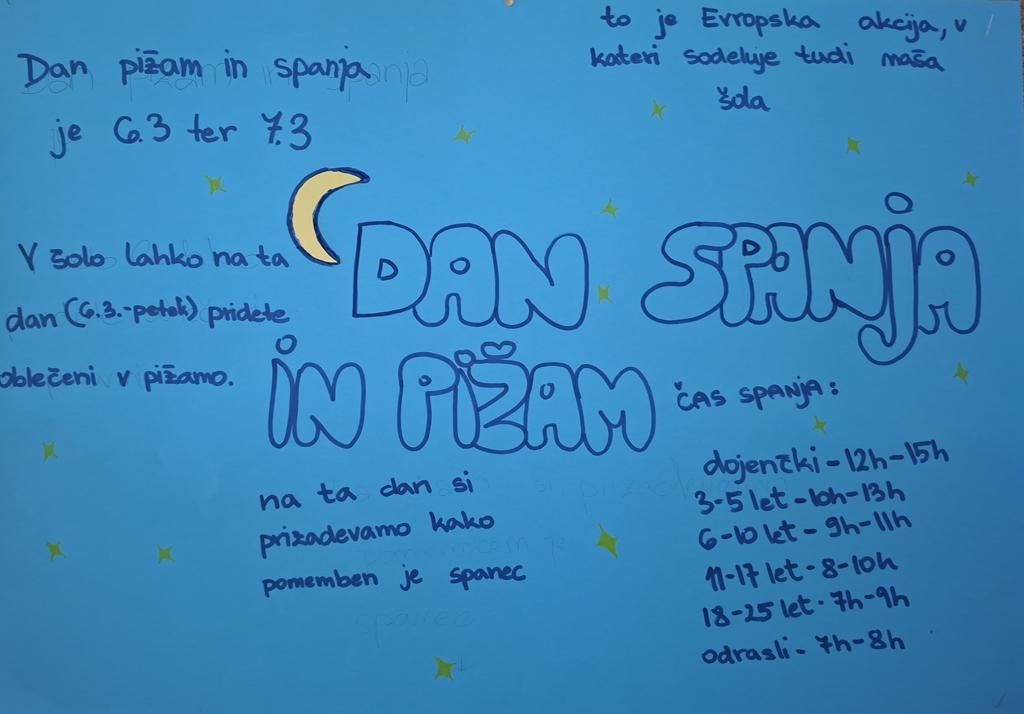 Dan pižam in spanja
je 6.3 ter 7.3
to je Evropska akcija, v
kateri sodeluje tudi naša
šola
V šolo lahko na ta
dan (6.3.-petek) pridete
oblečeni v pižamo.
DAN SPANJA
IN PIŽAM
na ta dan si
prizadevamo kako
pomemben je spanec
ČAS SPANJA:
dojenčki - 12h - 15h
3-5 let - 10h - 13h
6-10 let - 9h - 11h
11-17 let - 8 - 10h
18-25 let - 7h - 9h
odrasli - 7h - 8h